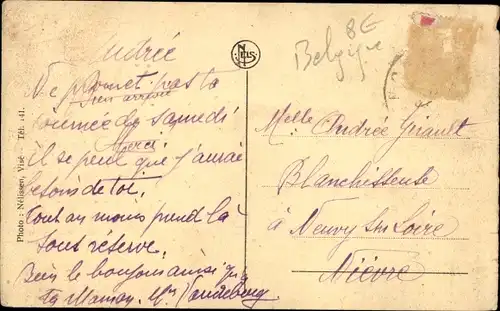 Andrée
Ne promet pas ta
bien arrivé
tournée de samedi
Merci
il se peut que j'aurai
besoin de toi.
Tout au moins prend la
sous réserve.
Bien le bonjour ainsi que
ta Maman. Mme Vandeberg
Photo : Nélissen, Visé. Tél. 141.
NELS
Belgique
8E
Melle Andrée Girault
Blanchisseuse
à Neuvy sur Loire
Nièvre